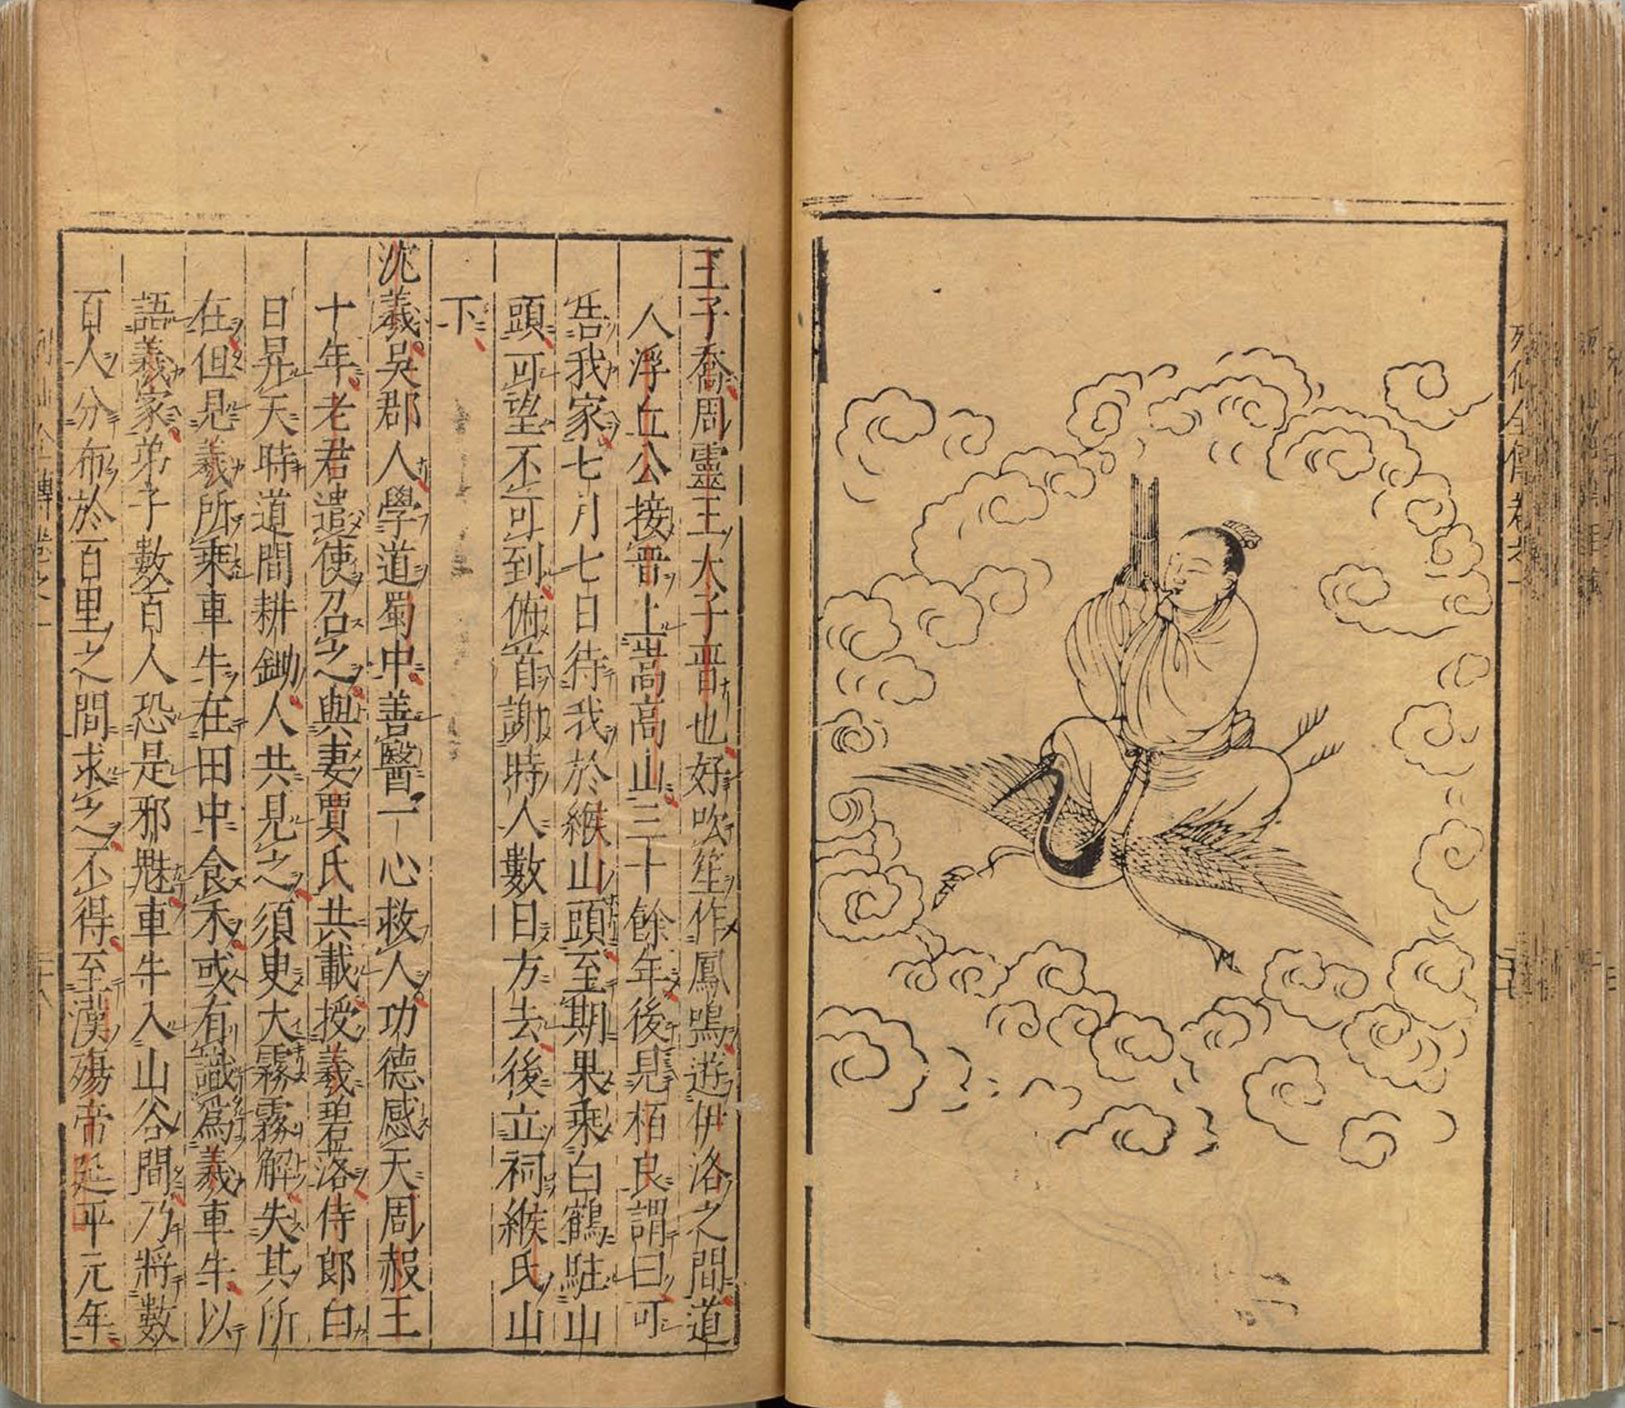 王子喬周靈王太子晉也好吹笙作鳳鳴遊伊洛之間道
人浮丘公接晉上嵩高山三十餘年後見栢良謂曰可
告我家七月七日待我於緱山頭至期果乗白鶴駐山
頭可望不可到俯首謝時人數日方去後立祠緱氏山
下
沈羲吳郡人學道蜀中善醫一心救人功德感天周赧王
十年老君遣使召之與妻賈氏共載授羲碧落侍郎白
日昇天時道間耕鋤人共見之須臾大霧霧解失其所
在但見羲所乗車牛在田中食禾或有識爲羲車牛以
語羲家弟子數百人恐是邪魅車牛入山谷間乃將數
百人分布於百里之間求之不得至漢殤帝延平元年